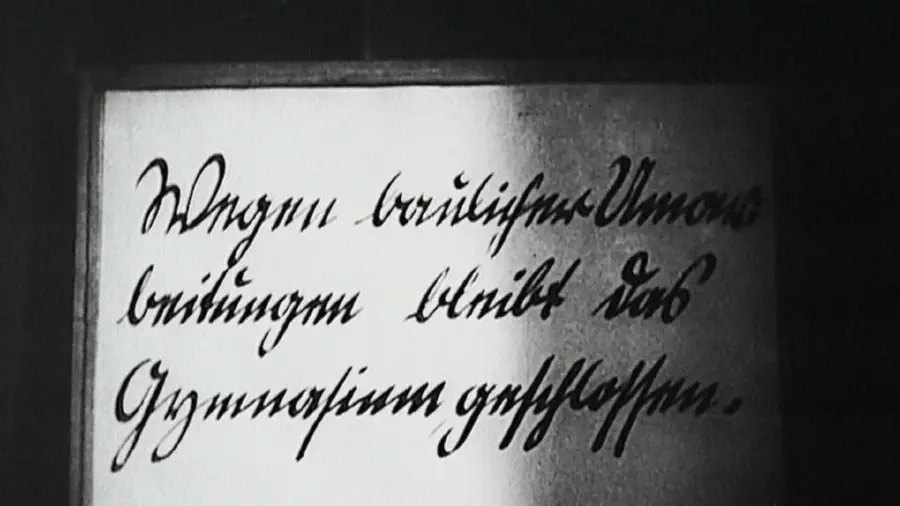 Wegen baulicher Umar
beitungen bleibt das
Gymnasium geschlossen.